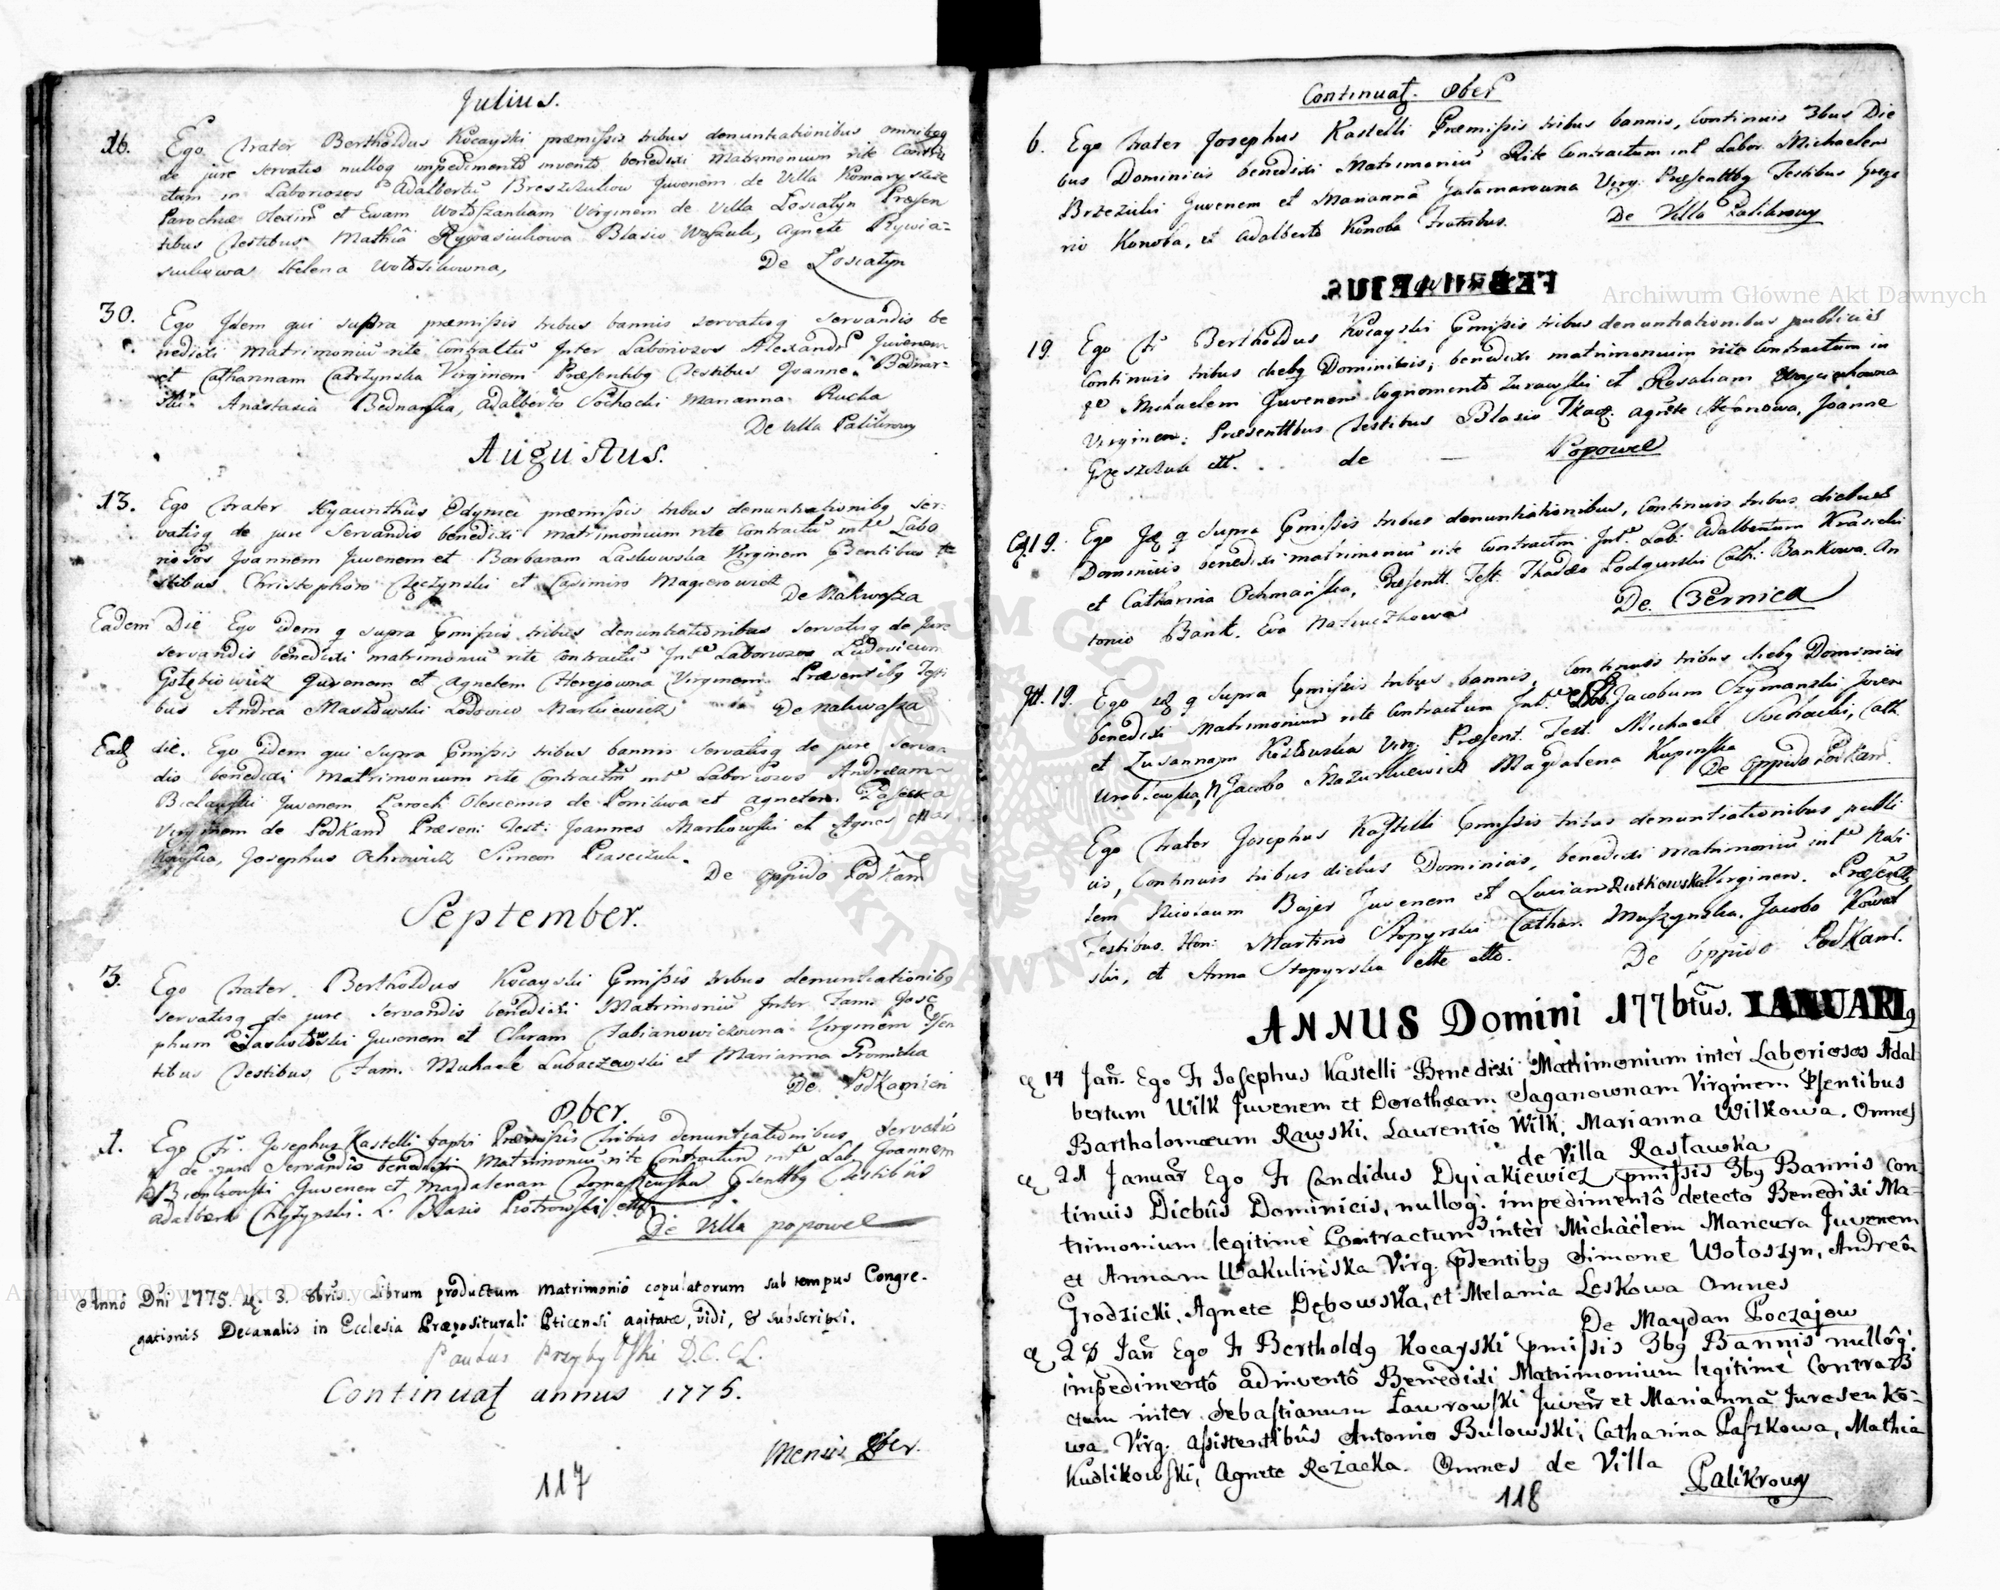 Julius.
16. Ego Frater Bertholdus Kocayski præmissis tribus denuntiationibus omnibq
de jure servatis nullog impedimento invento benedixi Matrimonium rite Contra
ctum in Laboriosos Adalbertũ Breszczuliow Juvenem de Villa Komarywka
Parochiæ et Evam Wołoszankam Virginem de Villa Łosiatyn Præsen
tibus Testibus Mathiâ Rywasiukowa Blasio Waszule, Agnete Rywia=
siukowa Helena Wołoszikowna,
De Łosiatyn
30. Ego Idem qui supra præmissis tribus bannis servatisq servandis be
nedixi Matrimoniũ rite Contractũ Inter Laboriosos Alexandrũ Juvenem
et Catharinam Catrzynska Virginem Præsentibq Testibus Joanne Bednar=
ski Anastasia Bednarska, Adalberto Sochocki Marianna Rucka
De Villa Palikrowy
Augustus.
13. Ego Frater Hyacinthus Edynies præmissis tribus denuntiationibq ser:
vatisq de jure Servandis benedixi matrimonium rite Contractũ inte Labo
riosos Joannem Juvenem et Barbaram Laskowska Virginem Psentibus te
stibus Christophoro Czeczynski et Casimiro Magierowicz
De Nakwasza
Eadem Die Ego idem q supra Pmissis tribus denuntiationibus servatisq de jure
servandis benedixi matrimoniũ rite Contractũ Inte Laboriosos Ludovicum
Gołębiowicz Juvenem et Agnetem Cherejowna Virginem Præsentibq Testi
bus Andrea Masłowski Lodovico Markiewicz De Nakwasza
Eadē die. Ego idem qui supra Pmissis tribus bannis servatisq de jure servan
dis benedixi Matrimonium rite Contractum inte Laboriosos Andream
Bielawski Juvenem Paroch Olescensis de Ponikwa et Agnetem
Virginem de Podkami Præsen: Test: Joannes Markowski et Agnes
Josephus Ochrowicz Simeon Piasciszule.
De Oppido Podkam
September.
3. Ego Frater Bertholdus Kocayski Pmissis tribus denuntiationibq
servatisq de jure servandis benedixi Matrimoniũ Inter Fam: Jose
phum Juvenem et Claram Fabianowiczowna Virginem Psen
tibus Testibus Fam. Michaele Lubaczewski et Marianna Promicka
De Podkamien
8ber
1. Ego Fr. Josephus Kastelli Præmissis tribus denuntiationibus servatis
de jure Servandis benedixi Matrimoniũ rite Contractum inte Lab: Joannem
Bienkowski Juvenem et Magdalenam Tomaszewska Psenttbq Testibus
Adalberto Chyżynski. L. Blasio Piotrowski ett
De Villa popowce
Anno Dni 1775. d. 3. 8bris. Librum productum matrimoniô copulatorum sub tempus Congre-
gationis Decanalis in Ecclesia Præpositurali Pticensi agitatæ, vidi, & subscripsi.
Paulus Przybylski D.C.L.
Continuat annus 1775.
Mensis 8ber.
117
Continuat. 8ber
6. Ego Frater Josephus Kastelli Præmissis tribus bannis, Continuis 3bus Die
bus Dominicis benedixi Matrimoniũ Rite Contractum int Labor Michaelem
Brzezicki Juvenem et Mariannā Jatamarowna Virg: Præsenttbq Testibus Grego
rio Konoba, et Adalberto Konoba Fratribus.
De Villa Palikrowy
FEBRUARIUS.
19. Ego Fr Bertholdus Kocayski Pmissis tribus denuntiationibus publicis
Continuis tribus diebq Dominicis, benedixi matrimonium rite Contractum in
Michaelem Juvenem Cognomento Zurawski et Rosaliam
Virginem: Præsenttbus Testibus Blasio Tkacz. Agnete Stefanowa, Joanne
Greszczuk ett. . de — Popowce
Ead 19. Ego Id q supra Pmissis tribus denuntiationibus, Continuis tribus diebus
Dominicis benedixi matrimoniũ rite Contractm Inte Lab: Adalbertum Krasicki
et Catharina Ochmanska, Præsentt. Test. Thadæo Lodgurski Cath: Bankowa. An
tonio Bank. Eva Natiuczkowa
De. Czernica
It. 19. Ego id q supra Pmissis tribus bannis, Continuis tribus diebq Dominicis
benedixi Matrimonium rite Contractum Inte Lab. Jacobum Szymanski Juven
et Zusannam Kozłowska Virg Præsent. Test. Michaele Sochacki, Cath.
Wroblewska, Jacobo Mazurkiewicz Magdalena Kupinska
De Oppido Podkam.
Ego Frater Josephus Kastelli Pmissis tribus denuntiationibus publi
cis, Continuis tribus diebus Dominicis, benedixi matrimoniũ inte Nobi
lem Nicolaum Bajer Juvenem et Lucian Rutkowska Virginem. Præsentt
Testibus. Hon: Martino Stopyrski Cathar. Muszynska. Jacobo Kowal
ski, et Anna Stopyrska ette ette.
De Oppido Podkam.
ANNUS Domini 1776tũs. IANUARIq
d 14 Jan̄. Ego Fr Josephus Kastelli Benedixi Matrimonium intèr Laboriosos Adal-
bertum Wilk Juvenem et Dorothæam Saganownam Virginem Psentibus
Bartholomæum Rawski, Laurentio Wilk, Marianna Wilkowa. Omnes
de Villa Rasławka
d 21 Januar Ego Fr Candidus Dyiakiewicz pmissis 3bq Bannis con
tinuis Diebûs Dominicis, nulloq: impedimentô detecto Benedixi Ma-
trimonium legitimè Contractum intèr Michaelem Mancura Juvenem
et Annam Wakulinska Virg. Psentibq Simone Wołoszyn, Andreâ
Grodzicki, Agnete Dębowska, et Melania Leskowa Omnes
De Maydan Poczajow
d 28 Jan̄ Ego Fr Bertholdq Kocayski pmissis 3bq Bannis nullôq:
impedimentô adinventô Benedixi Matrimonium legitimè Contra
ctum inter Sebastianum Ławrowski Juven̄ et Mariannā Juresenko=
wa, Virg. Assistentibûs Antonio Bulowski, Catharina Paszkowa, Mathia
Kudlikowski, Agnete Rożacka. Omnes de Villa
Palikrowy
118
Archiwum Główne Akt Dawnych
Archiwum Główne Akt Dawnych
ARCHIWUM GŁÓWNE AKT DAWNYCH